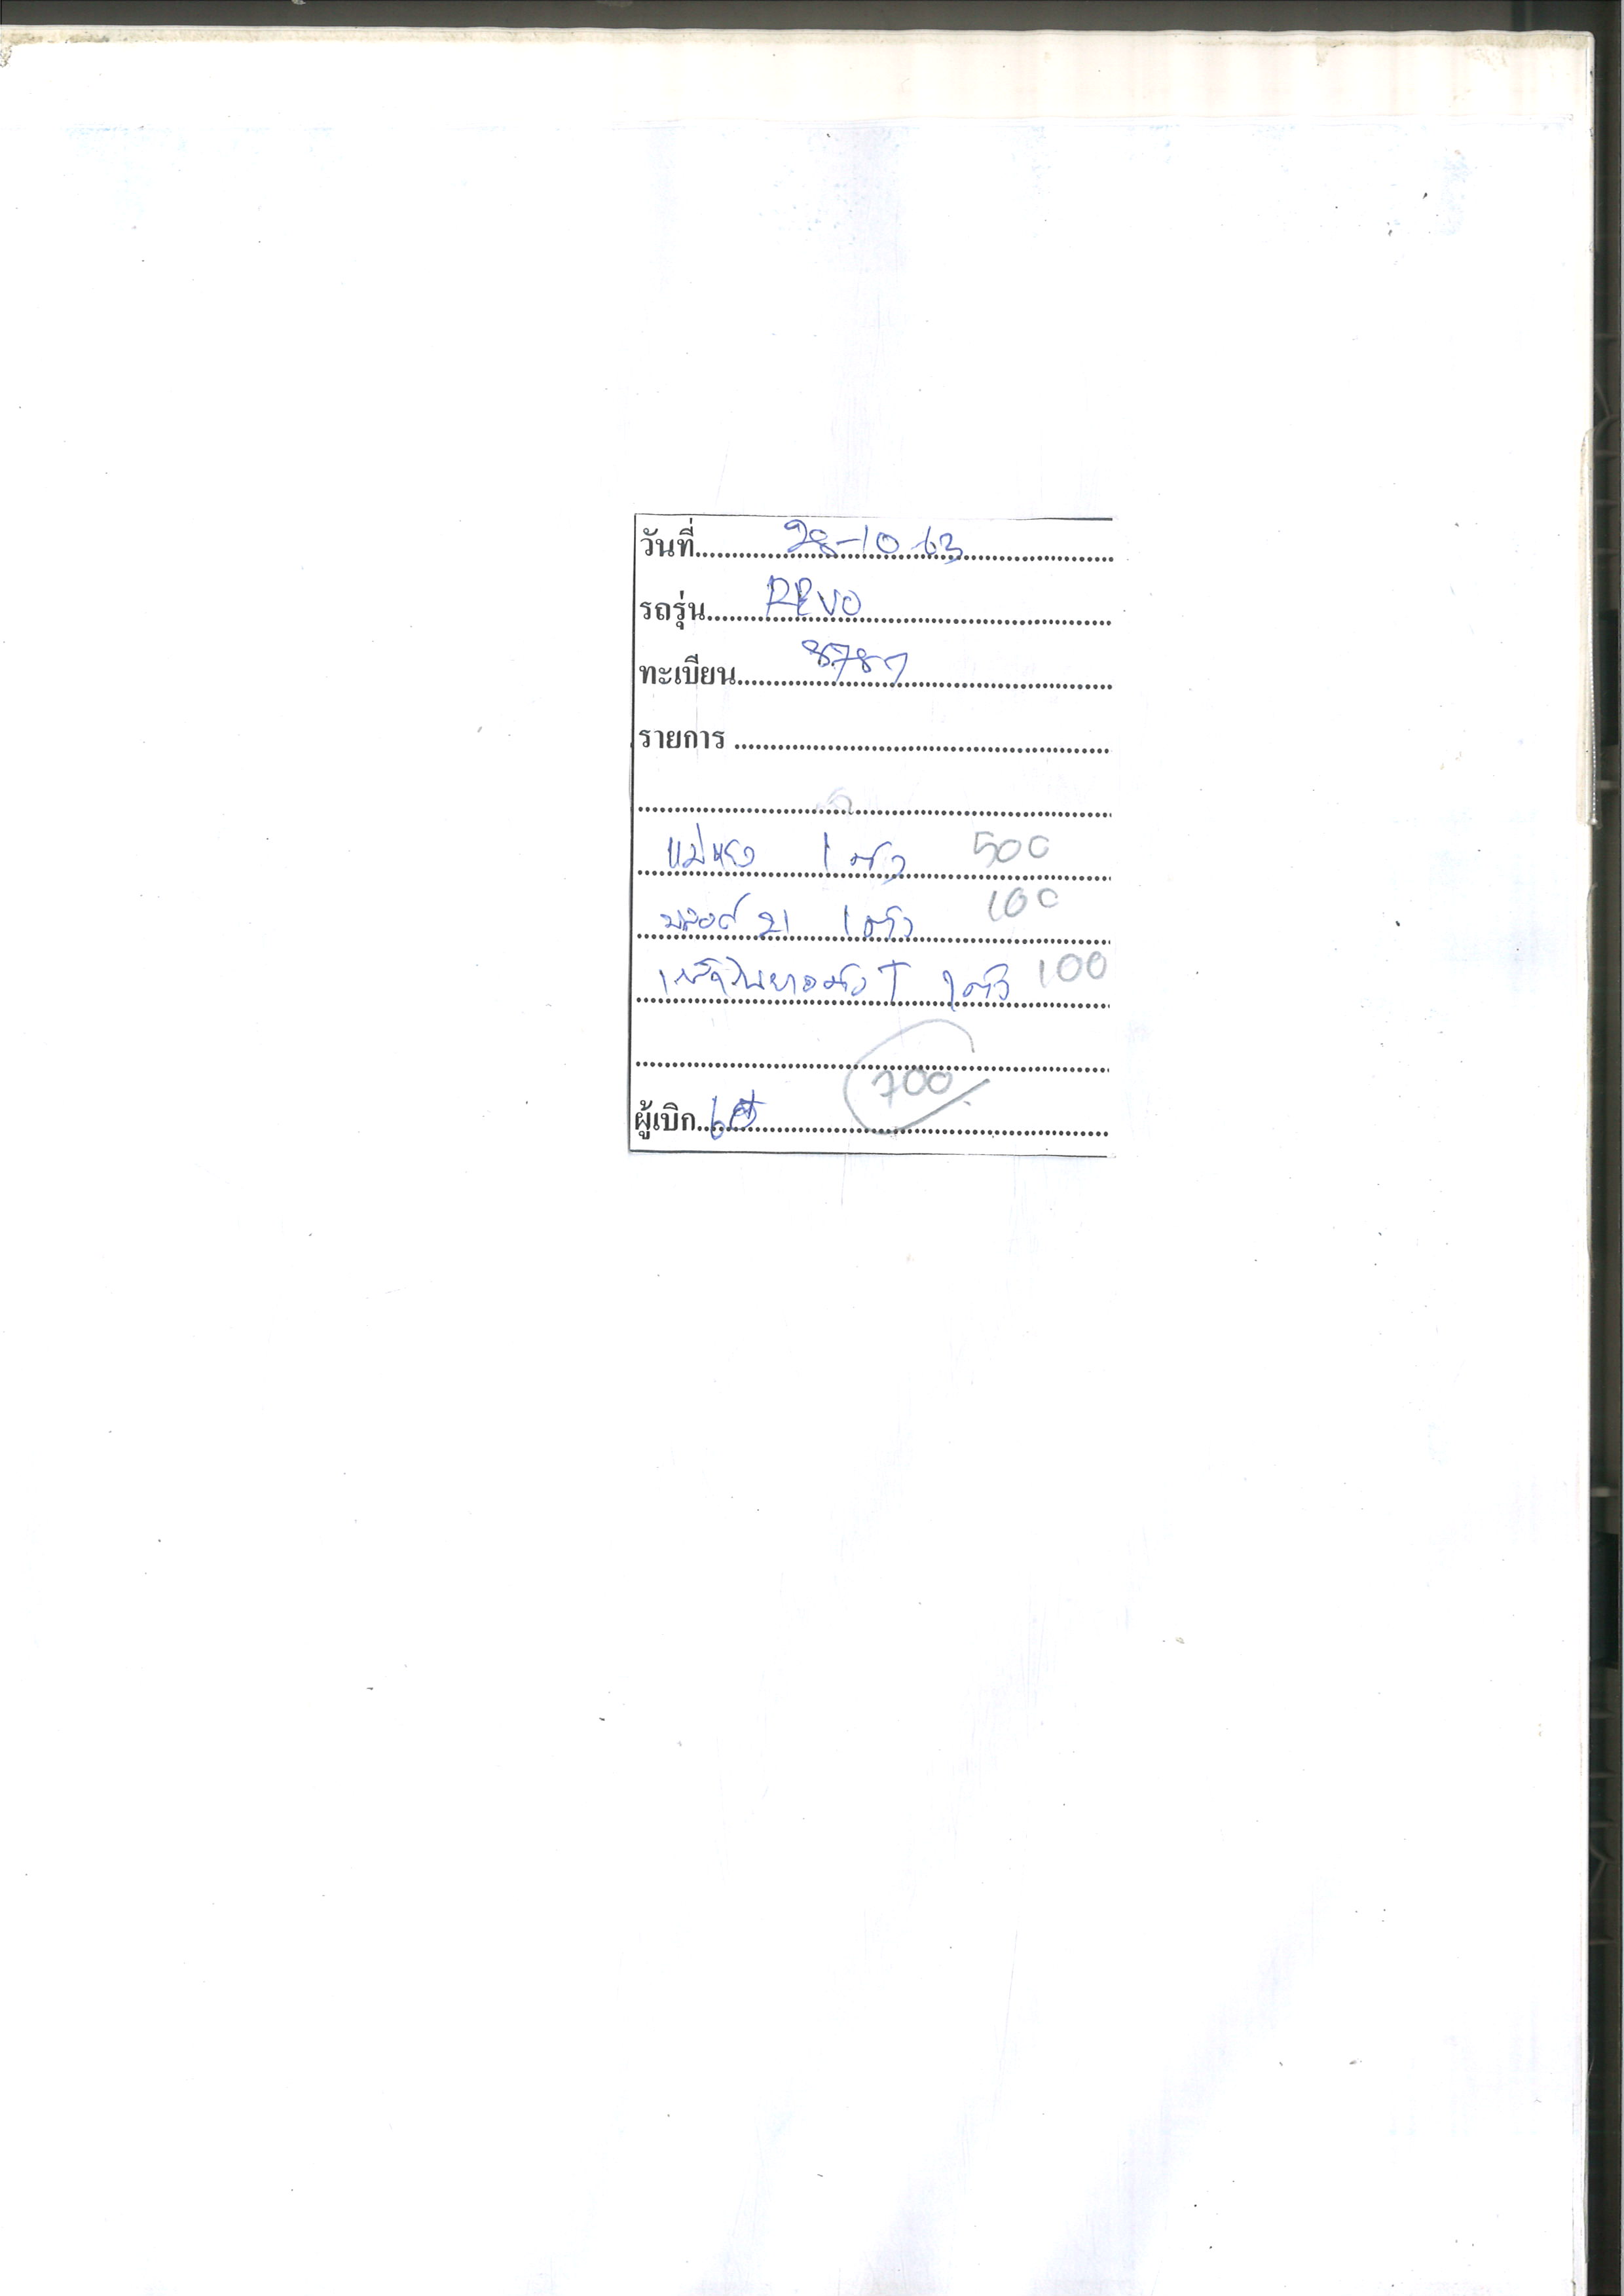 วันที่ 28-10-63
รถรุ่น REVO
ทะเบียน 8787
รายการ
แม่แรง 1 ตัว 500
บล็อก 21 1 ตัว 100
ตัว T 1 ตัว 100
700
ผู้เบิก